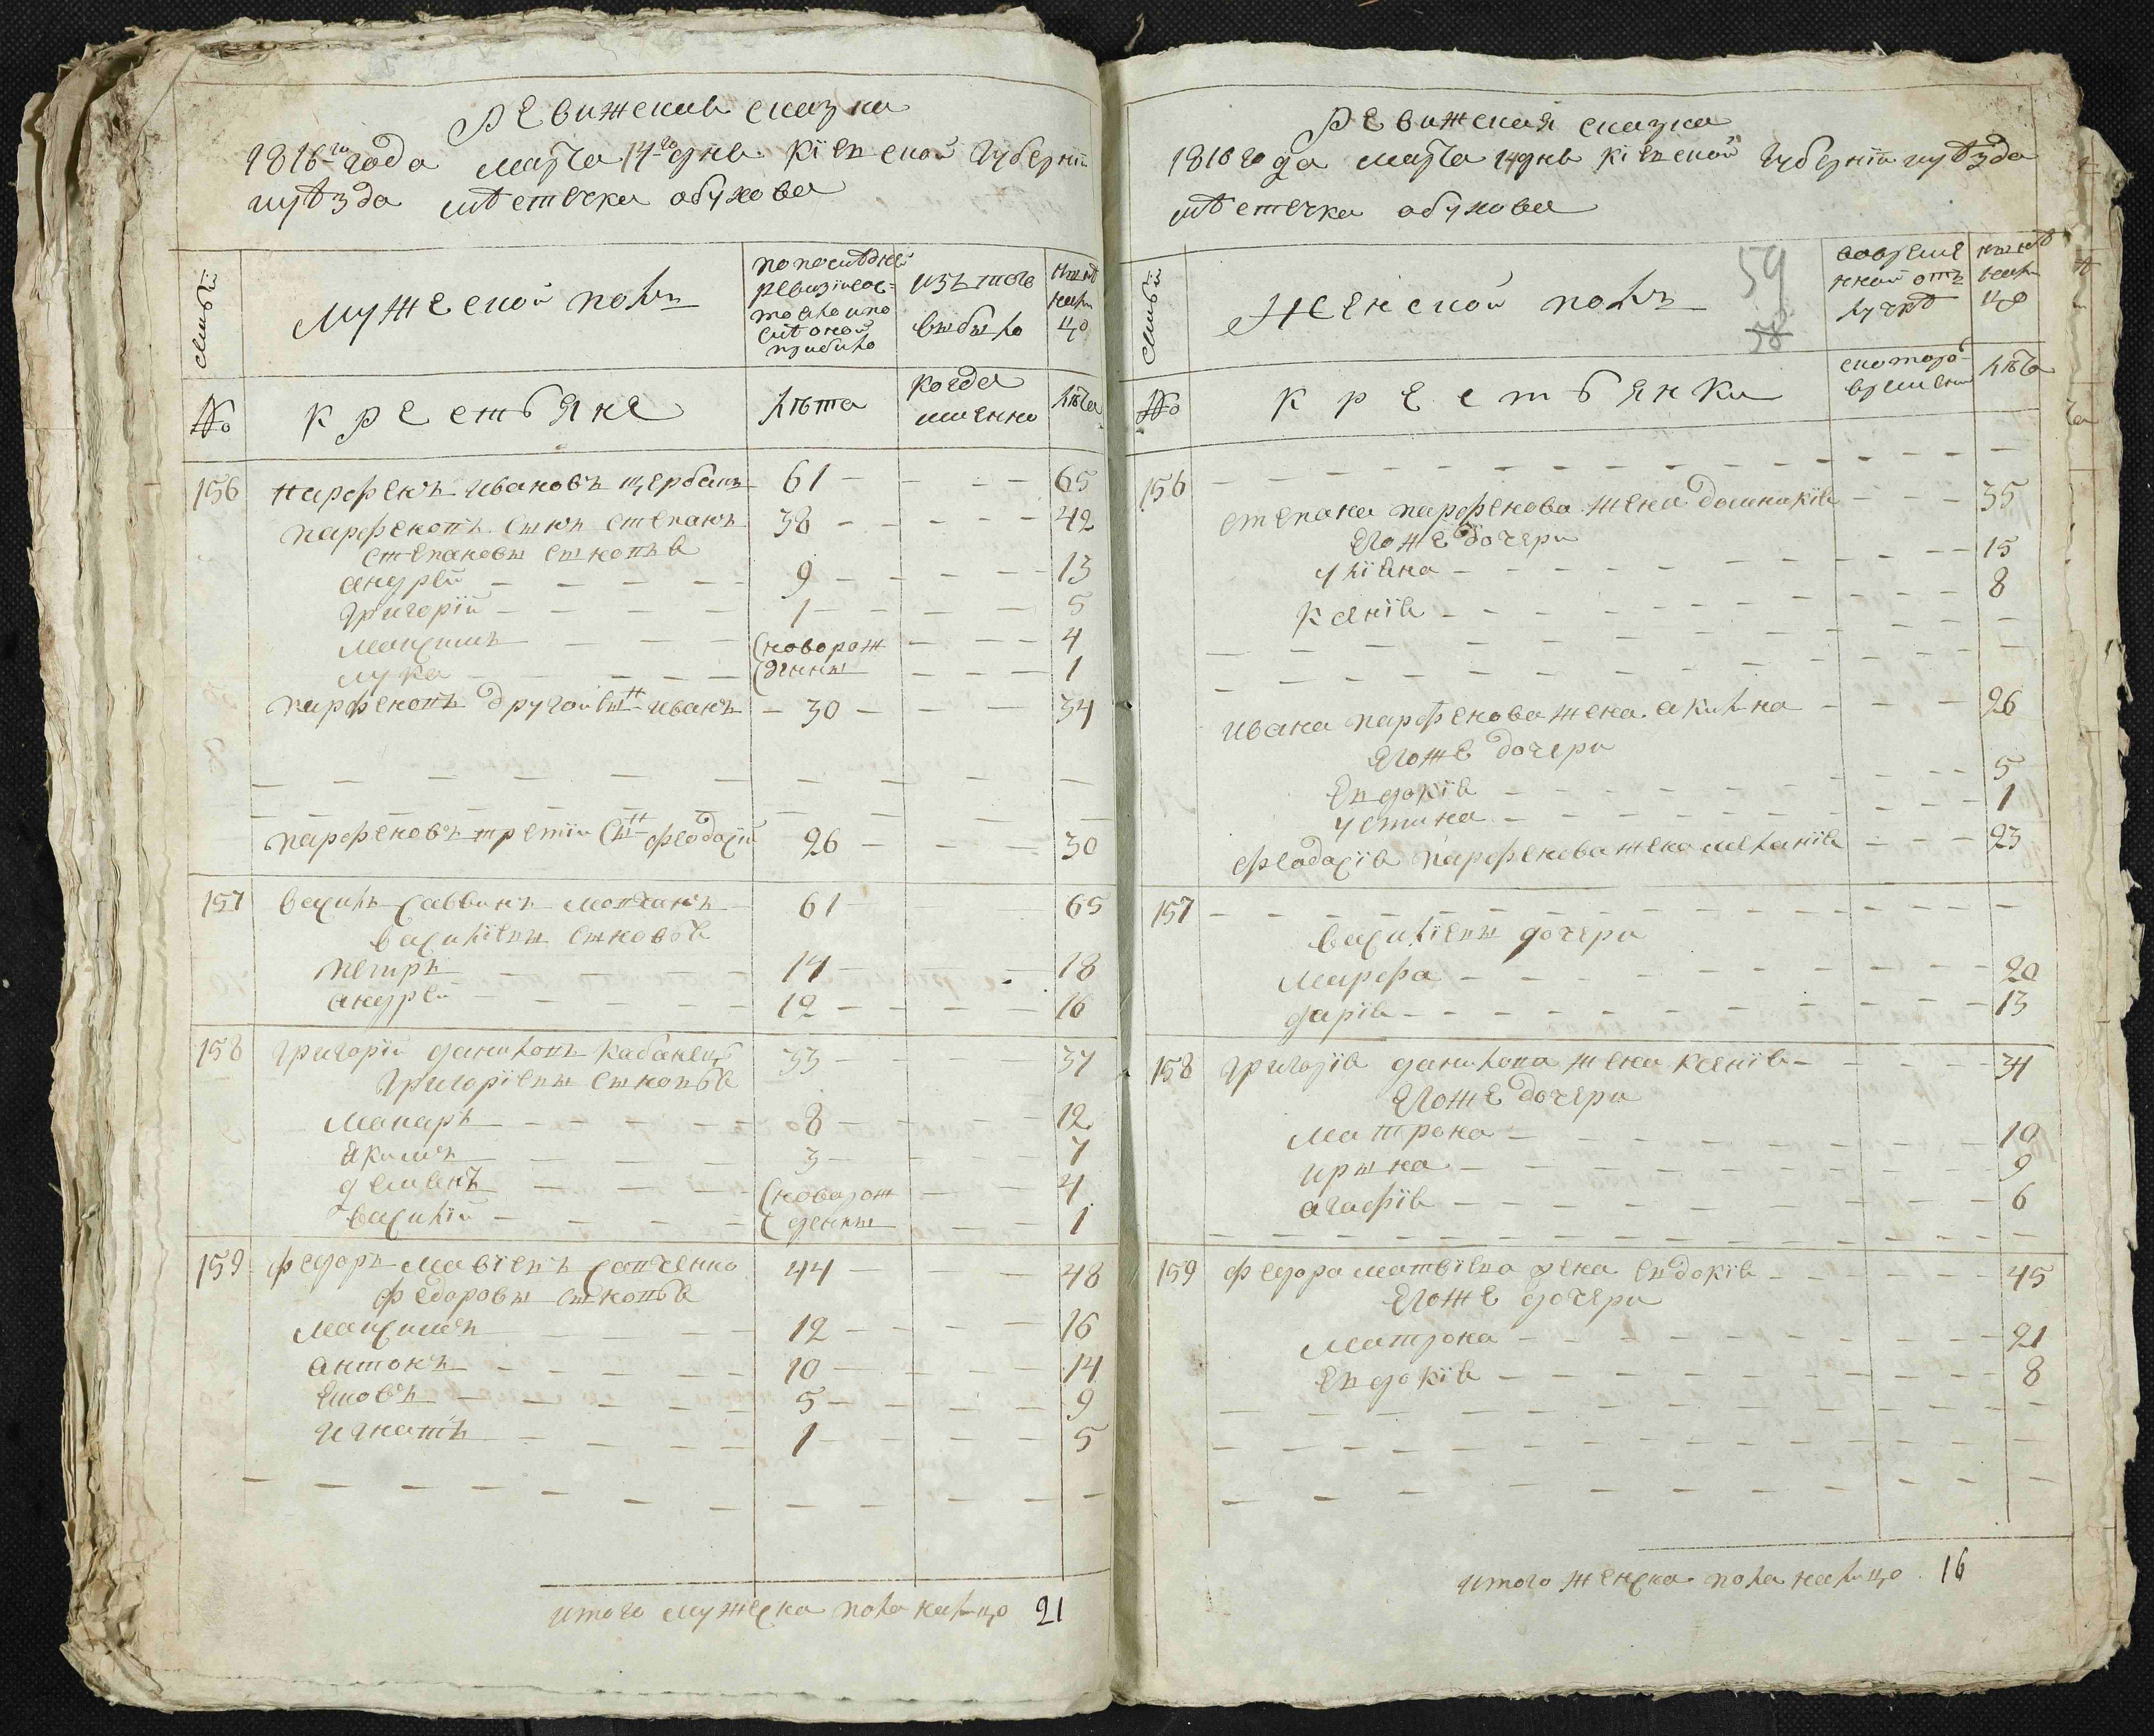 Ревижская сказка
1816-го года марта 14-го дня Кіевской губерніи
и уѣзда мѣстечка обухова
Семьи
мужеской полъ
по последней ревизіи состояло и после оной прибыло
изъ того выбыло
ныне на лицо
№
крестьяне
лѣта
когда именно
лѣта
156 Парфенъ Ивановъ щербакъ 61 65
парфеновъ сынъ степанъ 38 42
степановы сыновья
андрей 9 13
григорій 1 5
максимъ (новорож 4
лука (денны 1
парфеновъ другой сынъ иванъ 30 34
парфеновъ третій сынъ феодосій 26 30
157 василь саввинъ мовчанъ 61 65
василіевы сыновья
петръ 14 18
андрей 12 16
158 григорій даниловъ кабанецъ 33 37
григоріевы сыновья
макаръ 8 12
якимъ 3 7
демьянъ (новорож 4
василій (денны 1
159 федоръ мавіевъ сапченко 44 48
федоровы сыновья
максимъ 12 16
антонъ 10 14
Іовъ 5 9
игнатъ 1 5
итого мужеска пола налицо 21
Ревижская сказка
1816 года марта 14 дня кіевской губерніи и уѣзда
мѣстечка обухова
59
Семьи
Женской полъ
во временной отлучкѣ
нынѣ на лицо
№
крестьянки
с котораго времени
лѣта
156
степана парфенова жена домникія 35
его же дочери
уліяна 15
ксенія 8
ивана парфенова жена акилина 26
его же дочери
евдокія 5
устина 1
феодосія парфенова жена меланія 23
157
василіевы дочери
марфа 20
дарія 13
158 григорія данилова жена ксенія 34
его же дочери
матрона 10
ирына 9
агафія 6
159 федора матвіева жена евдокія 45
его же дочери
матрона 21
евдокія 8
итого женска пола налицо 16